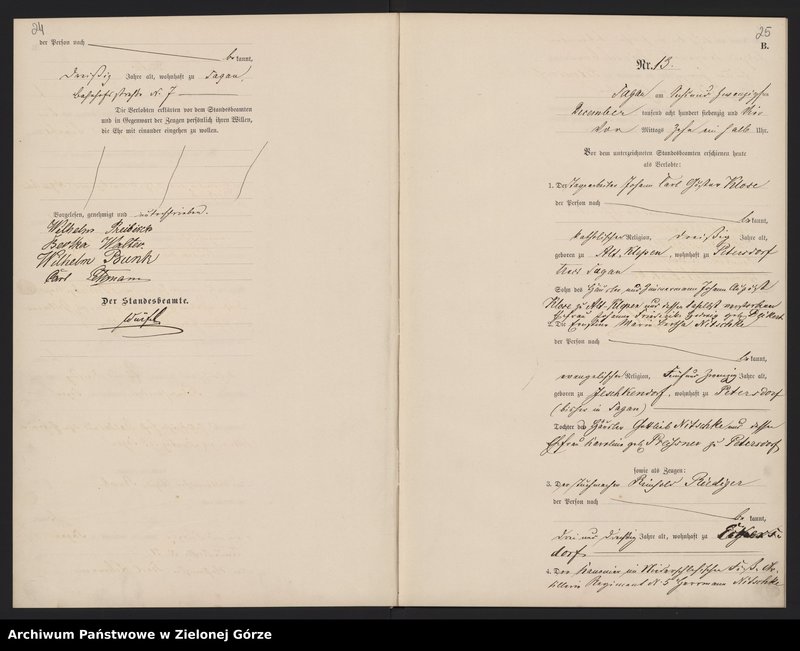 24
der Person nach
be kannt,
dreißig Jahre alt, wohnhaft zu Sagan,
Bahnhofstraße N. 7
Die Verlobten erklärten vor dem Standesbeamten
und in Gegenwart der Zeugen persönlich ihren Willen,
die Ehe mit einander eingehen zu wollen.
Vorgelesen, genehmigt und unterschrieben.
Wilhelm
Bertha Walter
Wilhelm Bunk
Carl
Der Standesbeamte.
25
B.
Nr. 13.
Sagan am
December tausend acht hundert siebenzig und
Vor Mittags Zehn ein halb Uhr.
Vor dem unterzeichneten Standesbeamten erschienen heute
als Verlobte:
1. Der Tagearbeiter Johann Carl Gustav Klose
der Person nach
be kannt,
katholischer Religion, dreißig Jahre alt,
geboren zu Alt. Kleppen, wohnhaft zu Petersdorf
Kreis Sagan
Sohn des Häusler und Zimmermann Johann August
Klose zu Alt. Kleppen und dessen
Ehefrau Johanna Friederike Hedwig geb.
2. Die Ernestine Marie Bertha Nitschke
der Person nach
be kannt,
evangelischer Religion, Fünf und Zwanzig Jahre alt,
geboren zu Jeschkendorf, wohnhaft zu Petersdorf
(bisher in Sagan)
Tochter des Häusler Gottlieb Nitschke und dessen
Ehefrau Karoline geb. zu Petersdorf
sowie als Zeugen:
3. Der Tuchmacher Reinhold Rüdiger
der Person nach
be kannt,
drei und dreißig Jahre alt, wohnhaft zu
dorf
4. Der Kanonier im Niederschlesischen
Regiment N. 5 Herrmann Nitschke
Archiwum Państwowe w Zielonej Górze